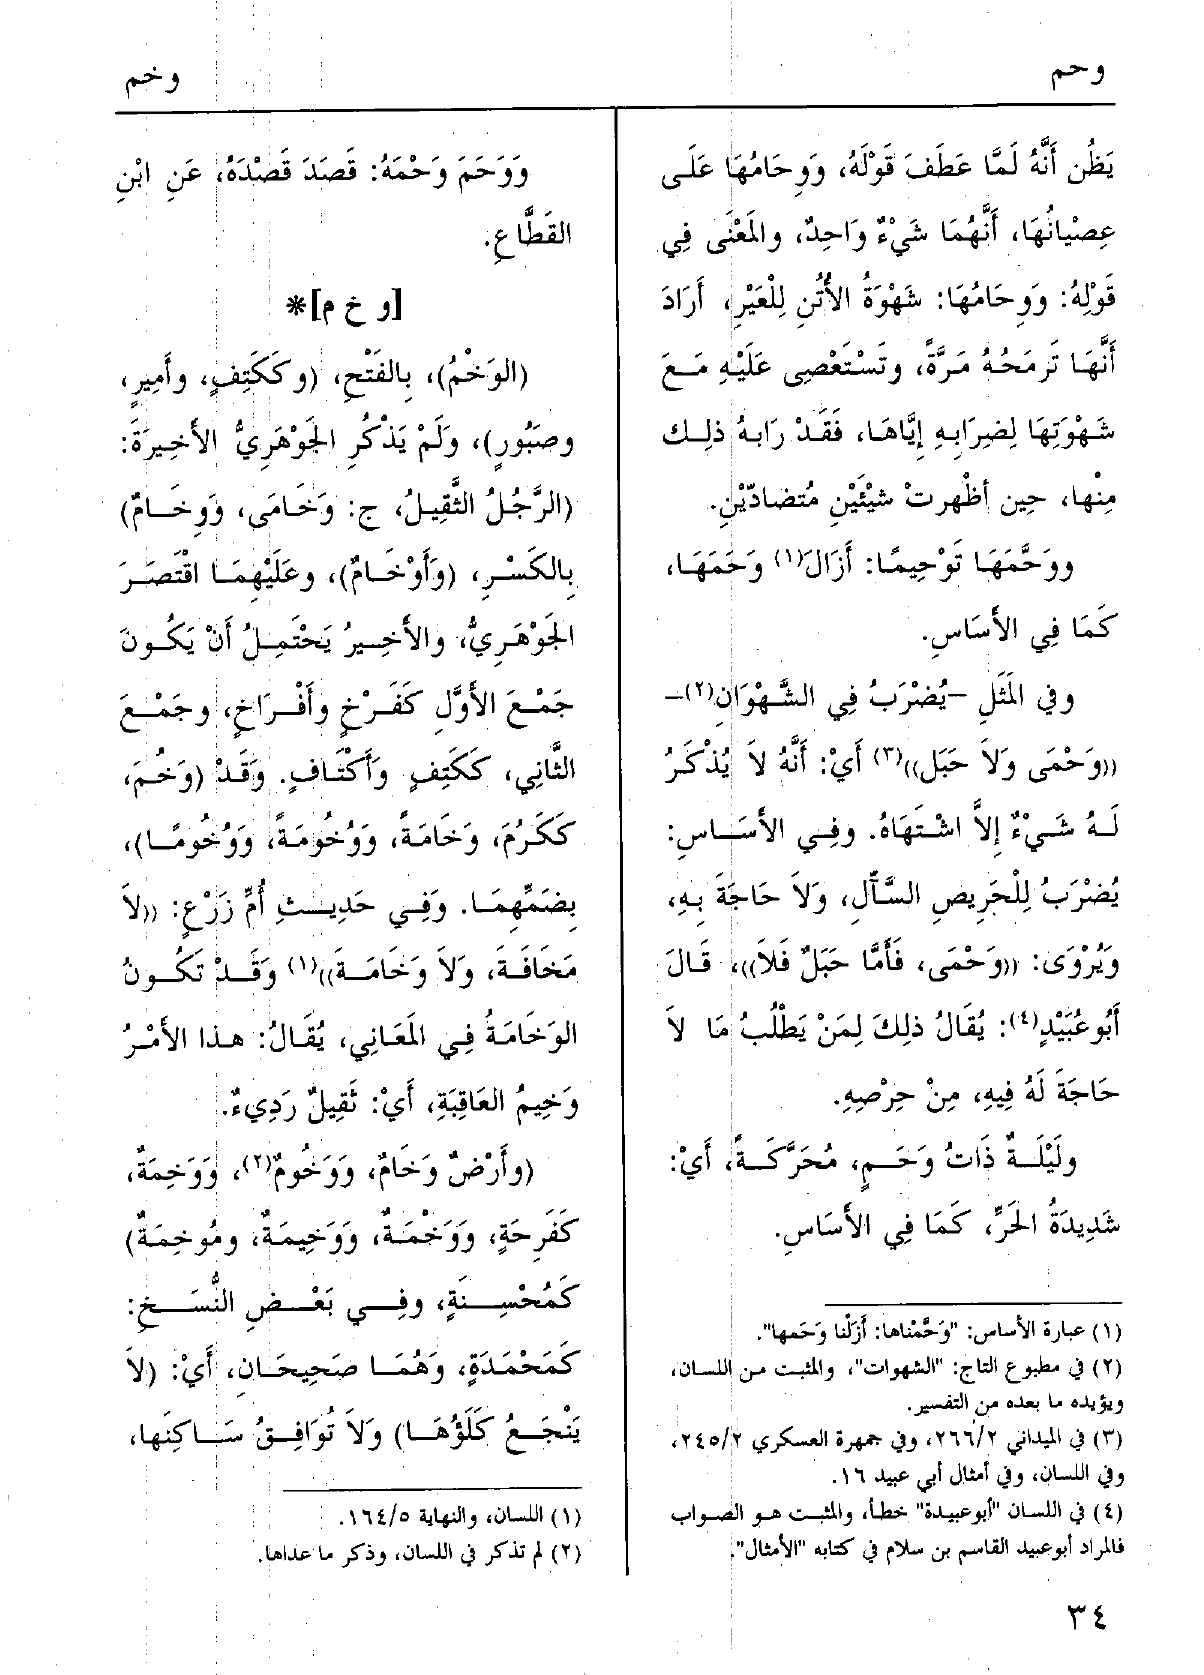 وحم
وخم
يَظُن أَنَّهُ لَمَّا عَطَفَ قَوْلَهُ، وَوِحَامُهَا عَلَى
عِصْيانُهَا، أَنَّهُمَا شَيْءٌ وَاحِدٌ، والمَعْنَى فِي
قَوْلِهُ: وَوِحَامُهَا: شَهْوَةُ الأُتُنِ لِلْعَيْرِ، أَرَادَ
أَنَّهَا تَرمَحُهُ مَرَّةً، وتَسْتَعْصِي عَلَيْهِ مَعَ
شَهْوَتِهَا لِضِرَابِهِ إِيَّاهَا، فَقَدْ رَابهُ ذلِكَ
مِنْها، حِين أظْهرتْ شيْئَيْنِ مُتضادّيْنِ.
ووَحَّمَهَا تَوْحِيمًا: أَزَالَ(١) وَحَمَهَا،
كَمَا فِي الأَسَاسِ.
وفي المَثَلِ –يُضْرَبُ فِي الشَّهْوَانِ(٢)–
((وَحْمَى وَلاَ حَبَل))(٣) أَيْ: أَنَّهُ لاَ يُذْكَرُ
لَهُ شَيْءٌ إِلاَّ اشْتَهَاهُ. وفِي الأَسَاسِ:
يُضْرَبُ لِلْحَرِيصِ السَّآلِ، وَلاَ حَاجَةَ بِهِ،
وَيُرْوَى: ((وَحْمَى، فَأَمَّا حَبَلٌ فَلاَ))، قَالَ
أَبُوعُبَيْدٍ(٤): يُقَالُ ذلِكَ لِمَنْ يَطْلُبُ مَا لاَ
حَاجَةَ لَهُ فِيهِ، مِنْ حِرْصِهِ.
ولَيْلَةٌ ذَاتُ وَحَمٍ، مُحَرَّكَةً، أَيْ:
شَدِيدَةُ الحَرِّ، كَمَا فِي الأَسَاسِ.
(١) عبارة الأساس: "وَحَّمْناها: أَزَلْنا وَحَمها".
(٢) في مطبوع التاج: "الشهوات"، والمثبت من اللسان،
ويؤيده ما بعده من التفسير.
(٣) في الميداني ٢/٢٦٦، وفي جمهرة العسكري ٢/٢٤٥،
وفي اللسان، وفي أمثال أبي عبيد ١٦.
(٤) في اللسان "أبوعبيدة" خطأ، والمثبت هو الصواب
فالمراد أبوعبيد القاسم بن سلام في كتابه "الأمثال".
وَوَحَمَ وَحْمَهُ: قَصَدَ قَصْدَهُ، عَنِ ابْنِ
القَطَّاعِ.
[و خ م]*
(الوَخْمُ)، بِالفَتْحِ، (وكَكَتِفٍ، وأَمِيرٍ،
وصَبُورٍ)، ولَمْ يَذْكُرِ الجَوْهَرِيُّ الأَخِيرَةَ:
(الرَّجُلُ الثَّقِيلُ، ج: وَخَامَى، وَوِخَامٌ)
بِالكَسْرِ، (وَأَوْخَامٌ)، وعَلَيْهِمَا اقْتَصَرَ
الجَوْهَرِيُّ، والأَخِيرُ يَحْتَمِلُ أَنْ يَكُونَ
جَمْعَ الأَوَّلِ كَفَرْخٍ وأَفْرَاخٍ، وجَمْعَ
الثَّانِي، كَكَتِفٍ وَأَكْتَافٍ. وَقَدْ (وَخُمَ،
كَكَرُمَ، وَخَامَةً، وَوُخُومَةً، وَوُخُومًا)،
بِضَمِّهِمَا. وَفِي حَدِيثِ أُمِّ زَرْعٍ: ((لاَ
مَخَافَةَ، وَلاَ وَخَامَةَ))(١) وَقَدْ تَكُونُ
الوَخَامَةُ فِي المَعَانِي، يُقَالُ: هذا الأَمْرُ
وَخِيمُ العَاقِبَةِ، أَيْ: ثَقِيلٌ رَدِيءٌ.
(وأَرْضٌ وَخَامٌ، وَوَخُومٌ(٢)، وَوَخِمَةٌ،
كَفَرِحَةٍ، وَوَخْمَةٌ، وَوَخِيمَةٌ، ومُوخِمَةٌ)
كَمُحْسِنَةٍ، وفِي بَعْضِ النُّسَخِ:
كَمَحْمَدَةٍ، وَهُمَا صَحِيحَانِ، أَيْ: (لاَ
يَنْجَعُ كَلَؤُهَا) وَلاَ تُوَافِقُ سَاكِنَها،
(١) اللسان، والنهاية ٥/١٦٤.
(٢) لم تذكر في اللسان، وذكر ما عداها.
٣٤